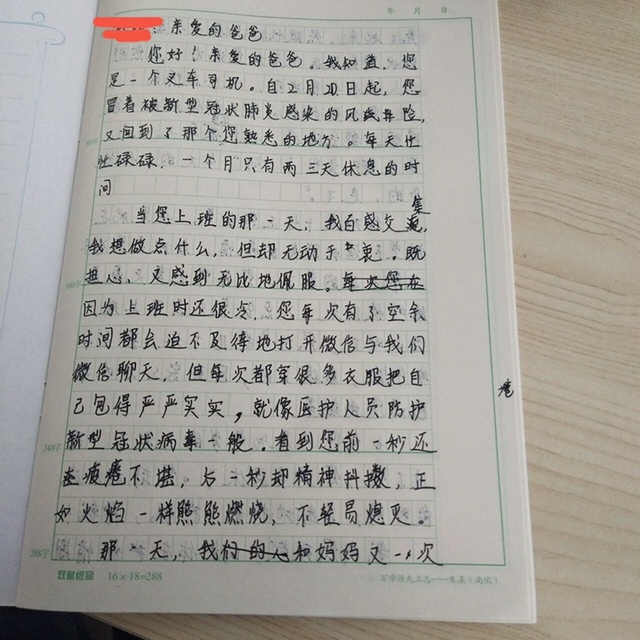 年 月 日
亲爱的爸爸
您好!亲爱的爸爸。我知道,您
是一个叉车司机。自2月20日起,您
冒着被新型冠状肺炎感染的风险,
又回到了那个您熟悉的地方。每天忙
忙碌碌,一个月只有两三天休息的时
间
集
当您上班的那一天,我百感交
我想做点什么,但却无动于衷。既
担心、又感到无比地佩服。每次您在
因为上班时还很忙.您每次有了空余
时间都会迫不及待地打开微信与我们
微信聊天,但每次都穿很多衣服把自
己包得严严实实,就像医护人员防护
新型冠状病毒一般。看到您前一秒还
惫
是疲惫不堪,后一秒却精神抖擞,正
如火焰一样熊熊燃烧,不轻易熄灭。
那一天,我们的人和妈妈又一次
240字
288字
双星纸品 16×18=288
百学须先立志——朱熹(南宋)